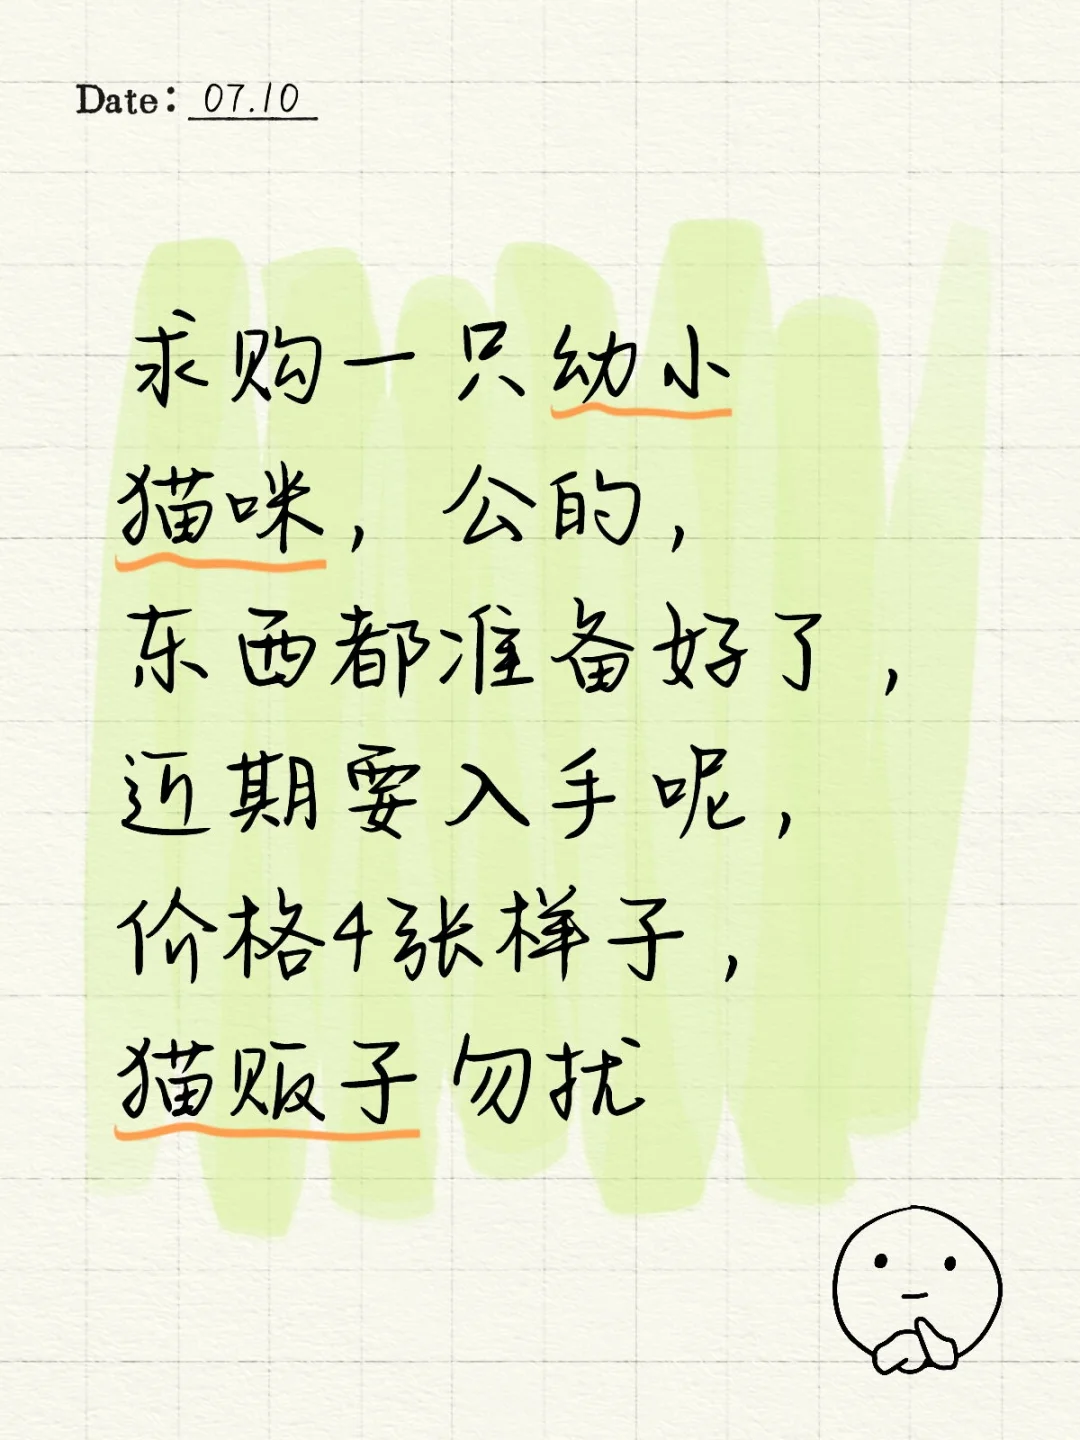 Date: 07.10
求购一只幼小
猫咪，公的，
东西都准备好了，
近期要入手呢，
价格4张样子，
猫贩子勿扰